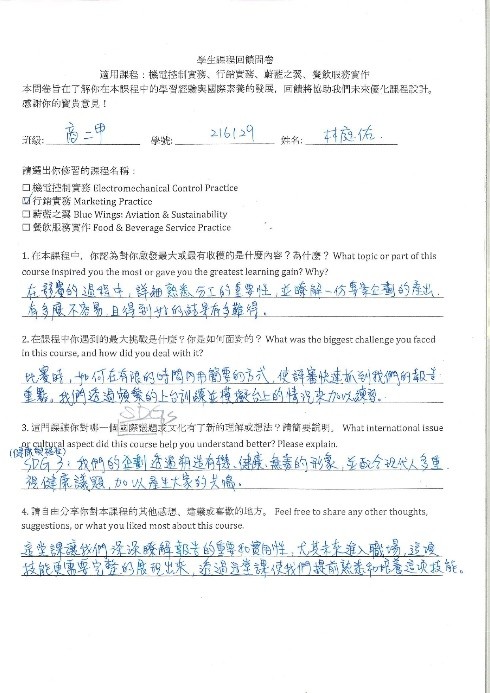 學生課程回饋問卷
適用課程：機電控制實務、行銷實務、蔚藍之翼、餐飲服務實作
本問卷旨在了解你在本課程中的學習經驗與國際素養的發展，回饋將協助我們未來優化課程設計。
感謝你的寶貴意見！
班級: 高二甲 學號: 216129 姓名: 林庭佑
請選出你修習的課程名稱：
☐ 機電控制實務 Electromechanical Control Practice
☑ 行銷實務 Marketing Practice
☐ 蔚藍之翼 Blue Wings: Aviation & Sustainability
☐ 餐飲服務實作 Food & Beverage Service Practice
1. 在本課程中，你認為對你啟發最大或最有收穫的是什麼內容？為什麼？ What topic or part of this
course inspired you the most or gave you the greatest learning gain? Why?
在競賽的過程中，詳細熟悉分工的重要性，並瞭解一份專業企劃的產出，
有多麼不容易，且得到好的結果有多難得。
2. 在課程中你遇到的最大挑戰是什麼？你是如何面對的？ What was the biggest challenge you faced
in this course, and how did you deal with it?
比賽時，如何在有限的時間內用簡要的方式，使評審快速抓到我們的報告
重點。我們透過頻繁的上台訓練並模擬台上的情況來加以練習。
SDGs
3. 這門課讓你對哪一個國際議題或文化有了新的理解或想法？請簡要說明。 What international issue
or cultural aspect did this course help you understand better? Please explain.
SDG 3：我們的企劃透過塑造有機、健康、無毒的形象，至於今現代人多重
視健康議題，加以產生大家的共鳴。
4. 請自由分享你對本課程的其他感想、建議或喜歡的地方。 Feel free to share any other thoughts,
suggestions, or what you liked most about this course.
這堂課讓我們深深瞭解報告的重要和實用性，尤其未來進入職場，這項
技能更需要完整的展現出來，透過這堂課使我們提前熟悉和培養這項技能。